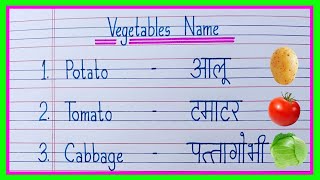 Vegetables Name
1. Potato - आलू
2. Tomato - टमाटर
3. Cabbage - पत्तागोभी